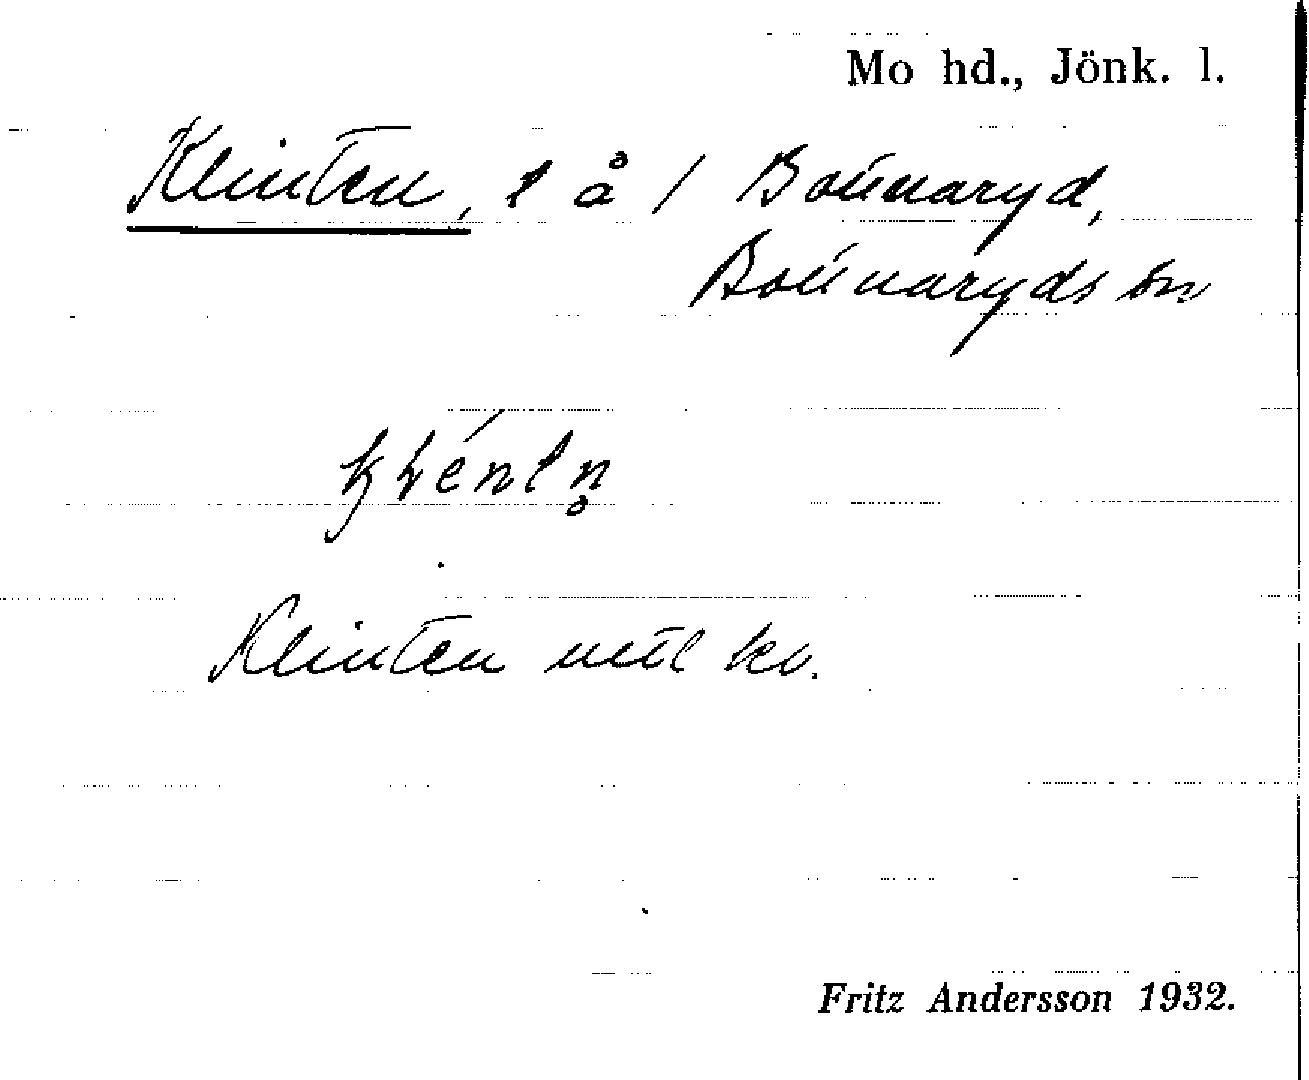 Mo hd., Jönk. l.
Klinten, t å / Bonnaryd,
Bonnaryds sn
Klinten utt kv.
Fritz Andersson 1932.